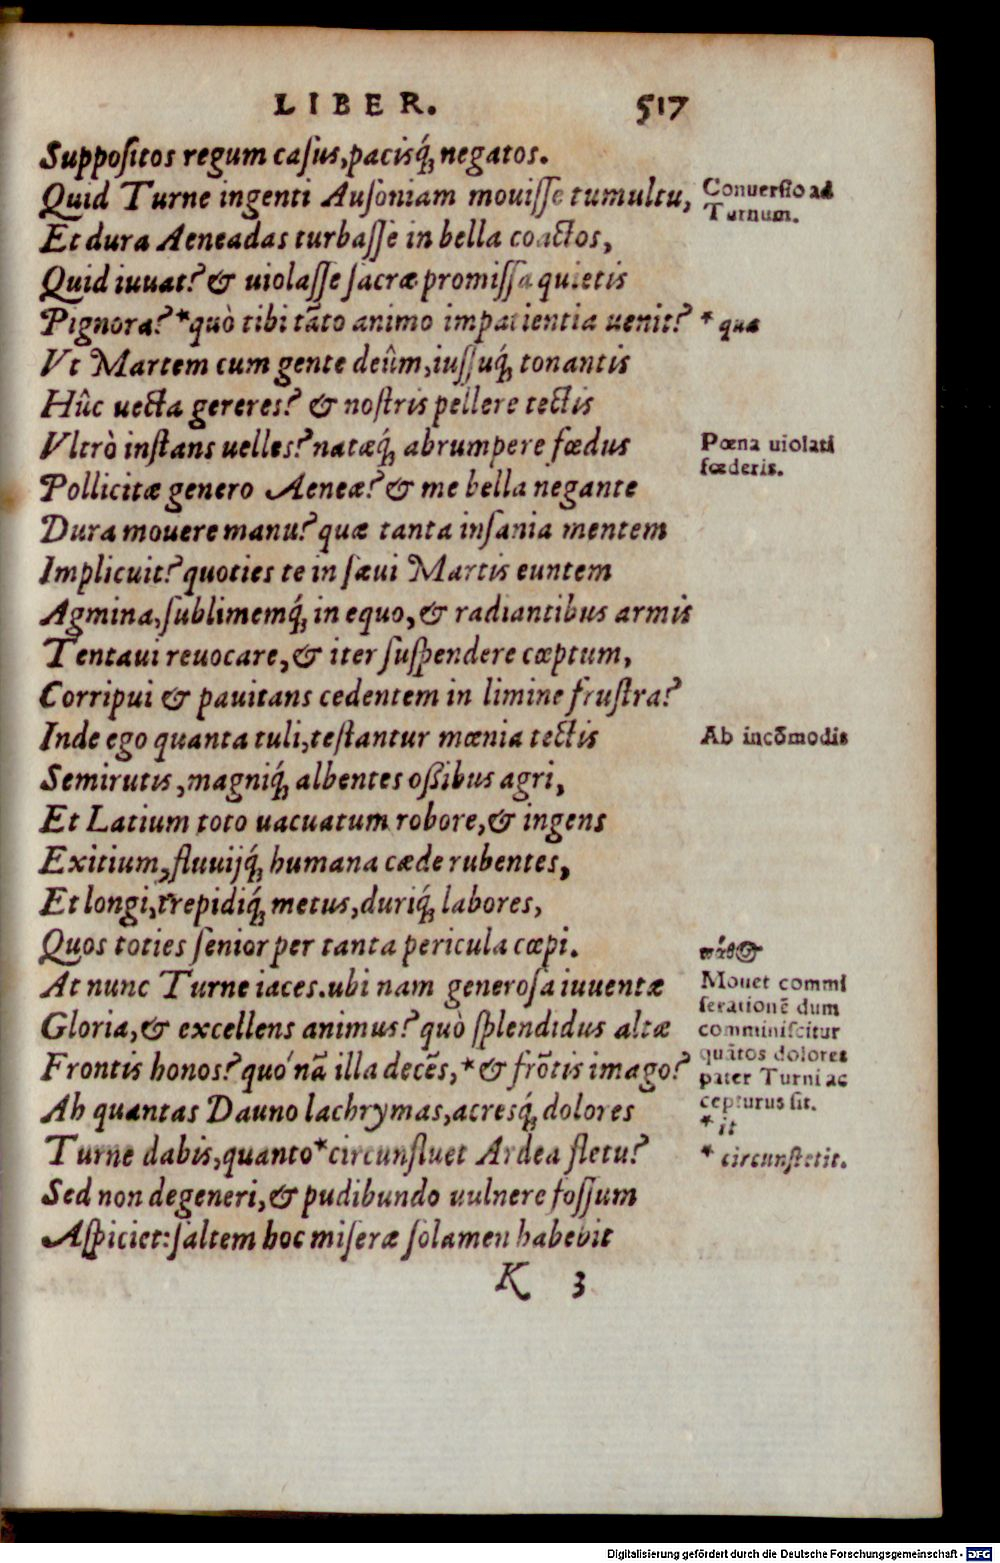 LIBER. 517
Suppoſitos regum caſus, pacisq́; negatos.
Quid Turne ingenti Auſoniam mouiſſe tumultu,
Conuerſio ad
Turnum.
Et dura Aeneadas turbaſſe in bella coactos,
Quid iuuat? & uiolaſſe ſacræ promiſſa quietis
Pignora? *quò tibi tãto animo impatientia uenit?
* quæ
Vt Martem cum gente deûm, iuſſuq́; tonantis
Hûc uecta gereres? & noſtris pellere tectis
Vltrò inſtans uelles? natæq́; abrumpere fœdus
Pœna uiolati
fœderis.
Pollicitæ genero Aeneæ? & me bella negante
Dura mouere manu? quæ tanta inſania mentem
Implicuit? quoties te in ſæui Martis euntem
Agmina, ſublimemq́; in equo, & radiantibus armis
Tentaui reuocare, & iter ſuſpendere cœptum,
Corripui & pauitans cedentem in limine fruſtra?
Inde ego quanta tuli, teſtantur mœnia tectis
Ab incõmodis
Semirutis, magniq́; albentes oßibus agri,
Et Latium toto uacuatum robore, & ingens
Exitium, fluuijq́; humana cæde rubentes,
Et longi, trepidiq́; metus, duriq́; labores,
Quos toties ſenior per tanta pericula cœpi.
At nunc Turne iaces. ubi nam generoſa iuuentæ
Gloria, & excellens animus? quò ſplendidus altæ
Frontis honos? quó nã illa decẽs, *& frõtis imago?
Ah quantas Dauno lachrymas, acresq́; dolores
Turne dabis, quanto *circunfluet Ardea fletu?
πάθος
Mouet commi
ſerationẽ dum
comminiſcitur
quãtos dolores
pater Turni ac
cepturus ſit.
* it
* circunſtetit.
Sed non degeneri, & pudibundo uulnere foſſum
Aſpiciet: ſaltem hoc miſeræ ſolamen habebit
K 3
Digitalisierung gefördert durch die Deutsche Forschungsgemeinschaft - DFG